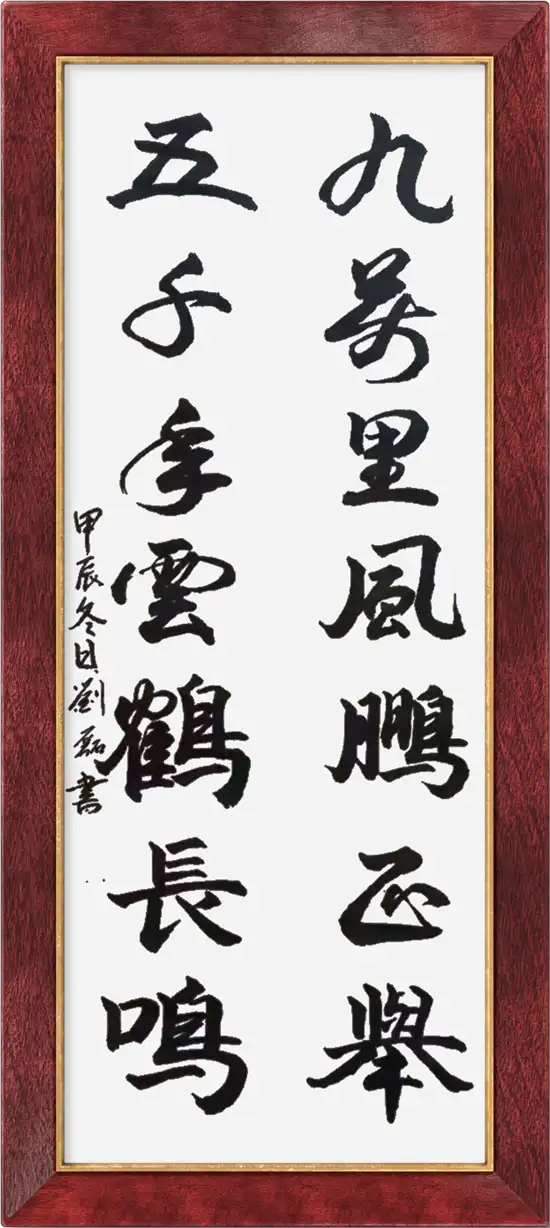 九萬里風鵬正舉
五千年雲鶴長鳴
甲辰冬日劉磊書